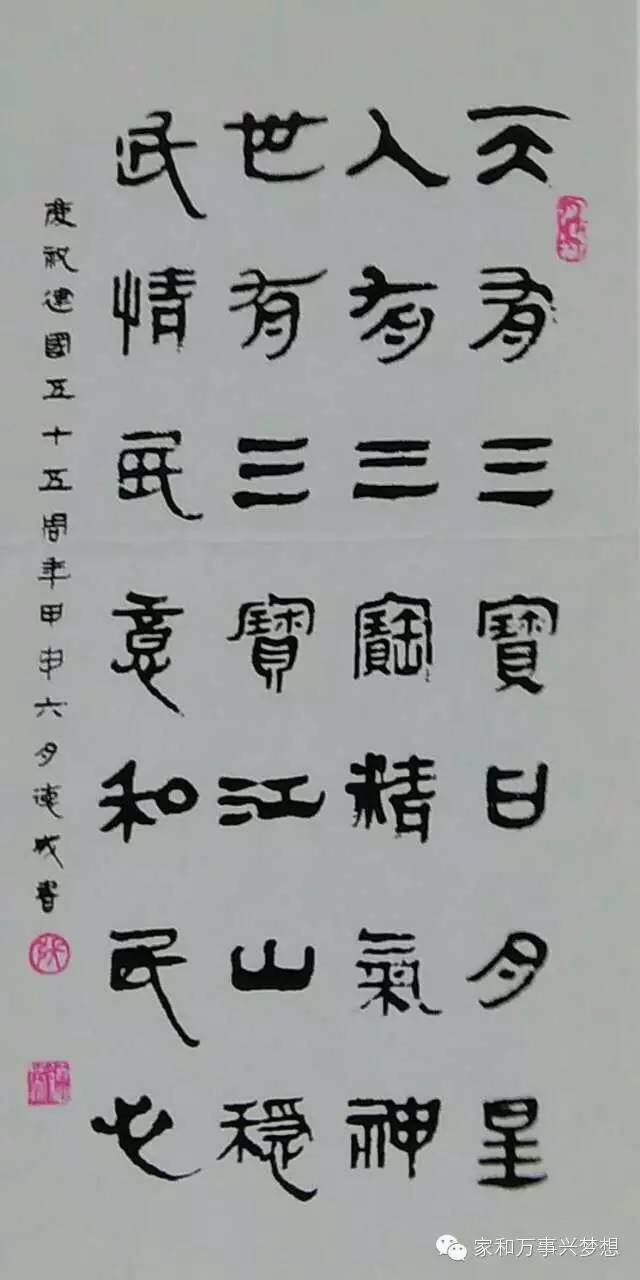 天有三寶日月星
人有三寶精氣神
世有三寶江山穩
民情民意和民心
慶祝建國五十五周年甲申六月德成書
家和万事兴梦想